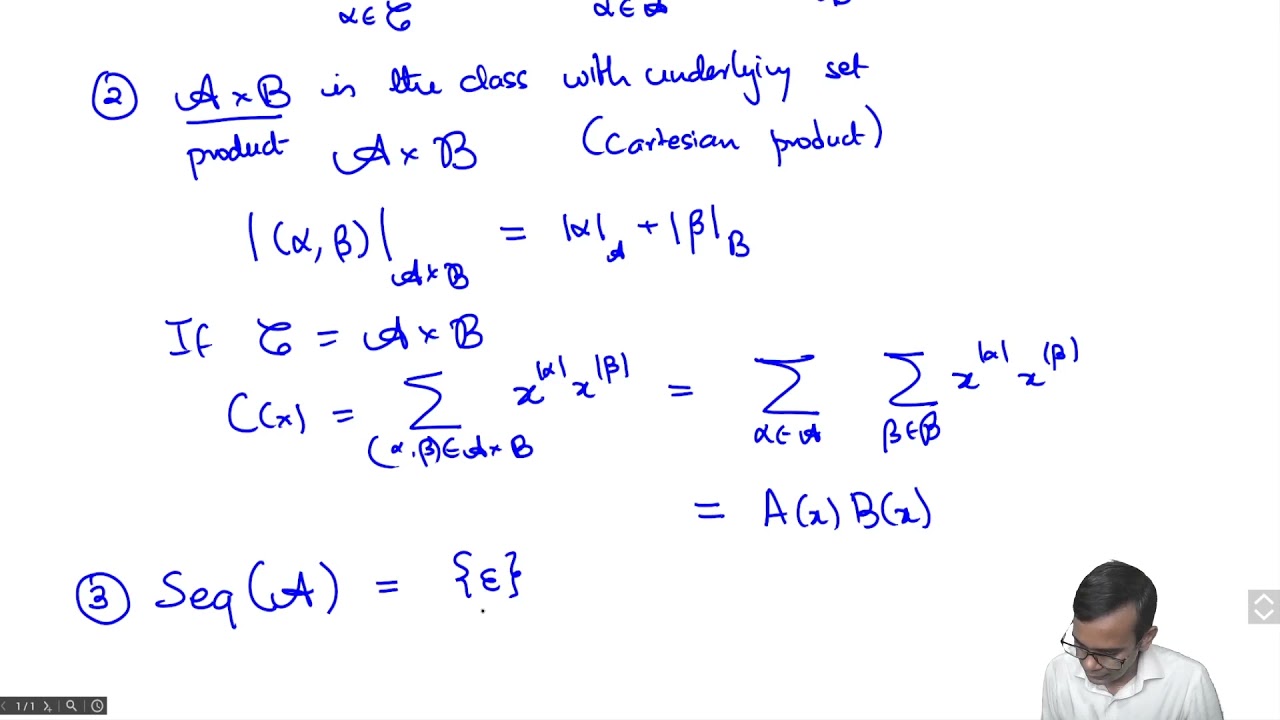 α∈𝒞 α∈𝒜 B
② 𝒜 × ℬ is the class with underlying set
product 𝒜 × ℬ (Cartesian product)
|(α, β)|_{𝒜×ℬ} = |α|_𝒜 + |β|_ℬ
If 𝒞 = 𝒜 × ℬ
C(x) = ∑_{(α,β)∈𝒜×ℬ} x^{|α|} x^{|β|} = ∑_{α∈𝒜} ∑_{β∈ℬ} x^{|α|} x^{|β|}
= A(x) B(x)
③ Seq(𝒜) = {ε}
1/1